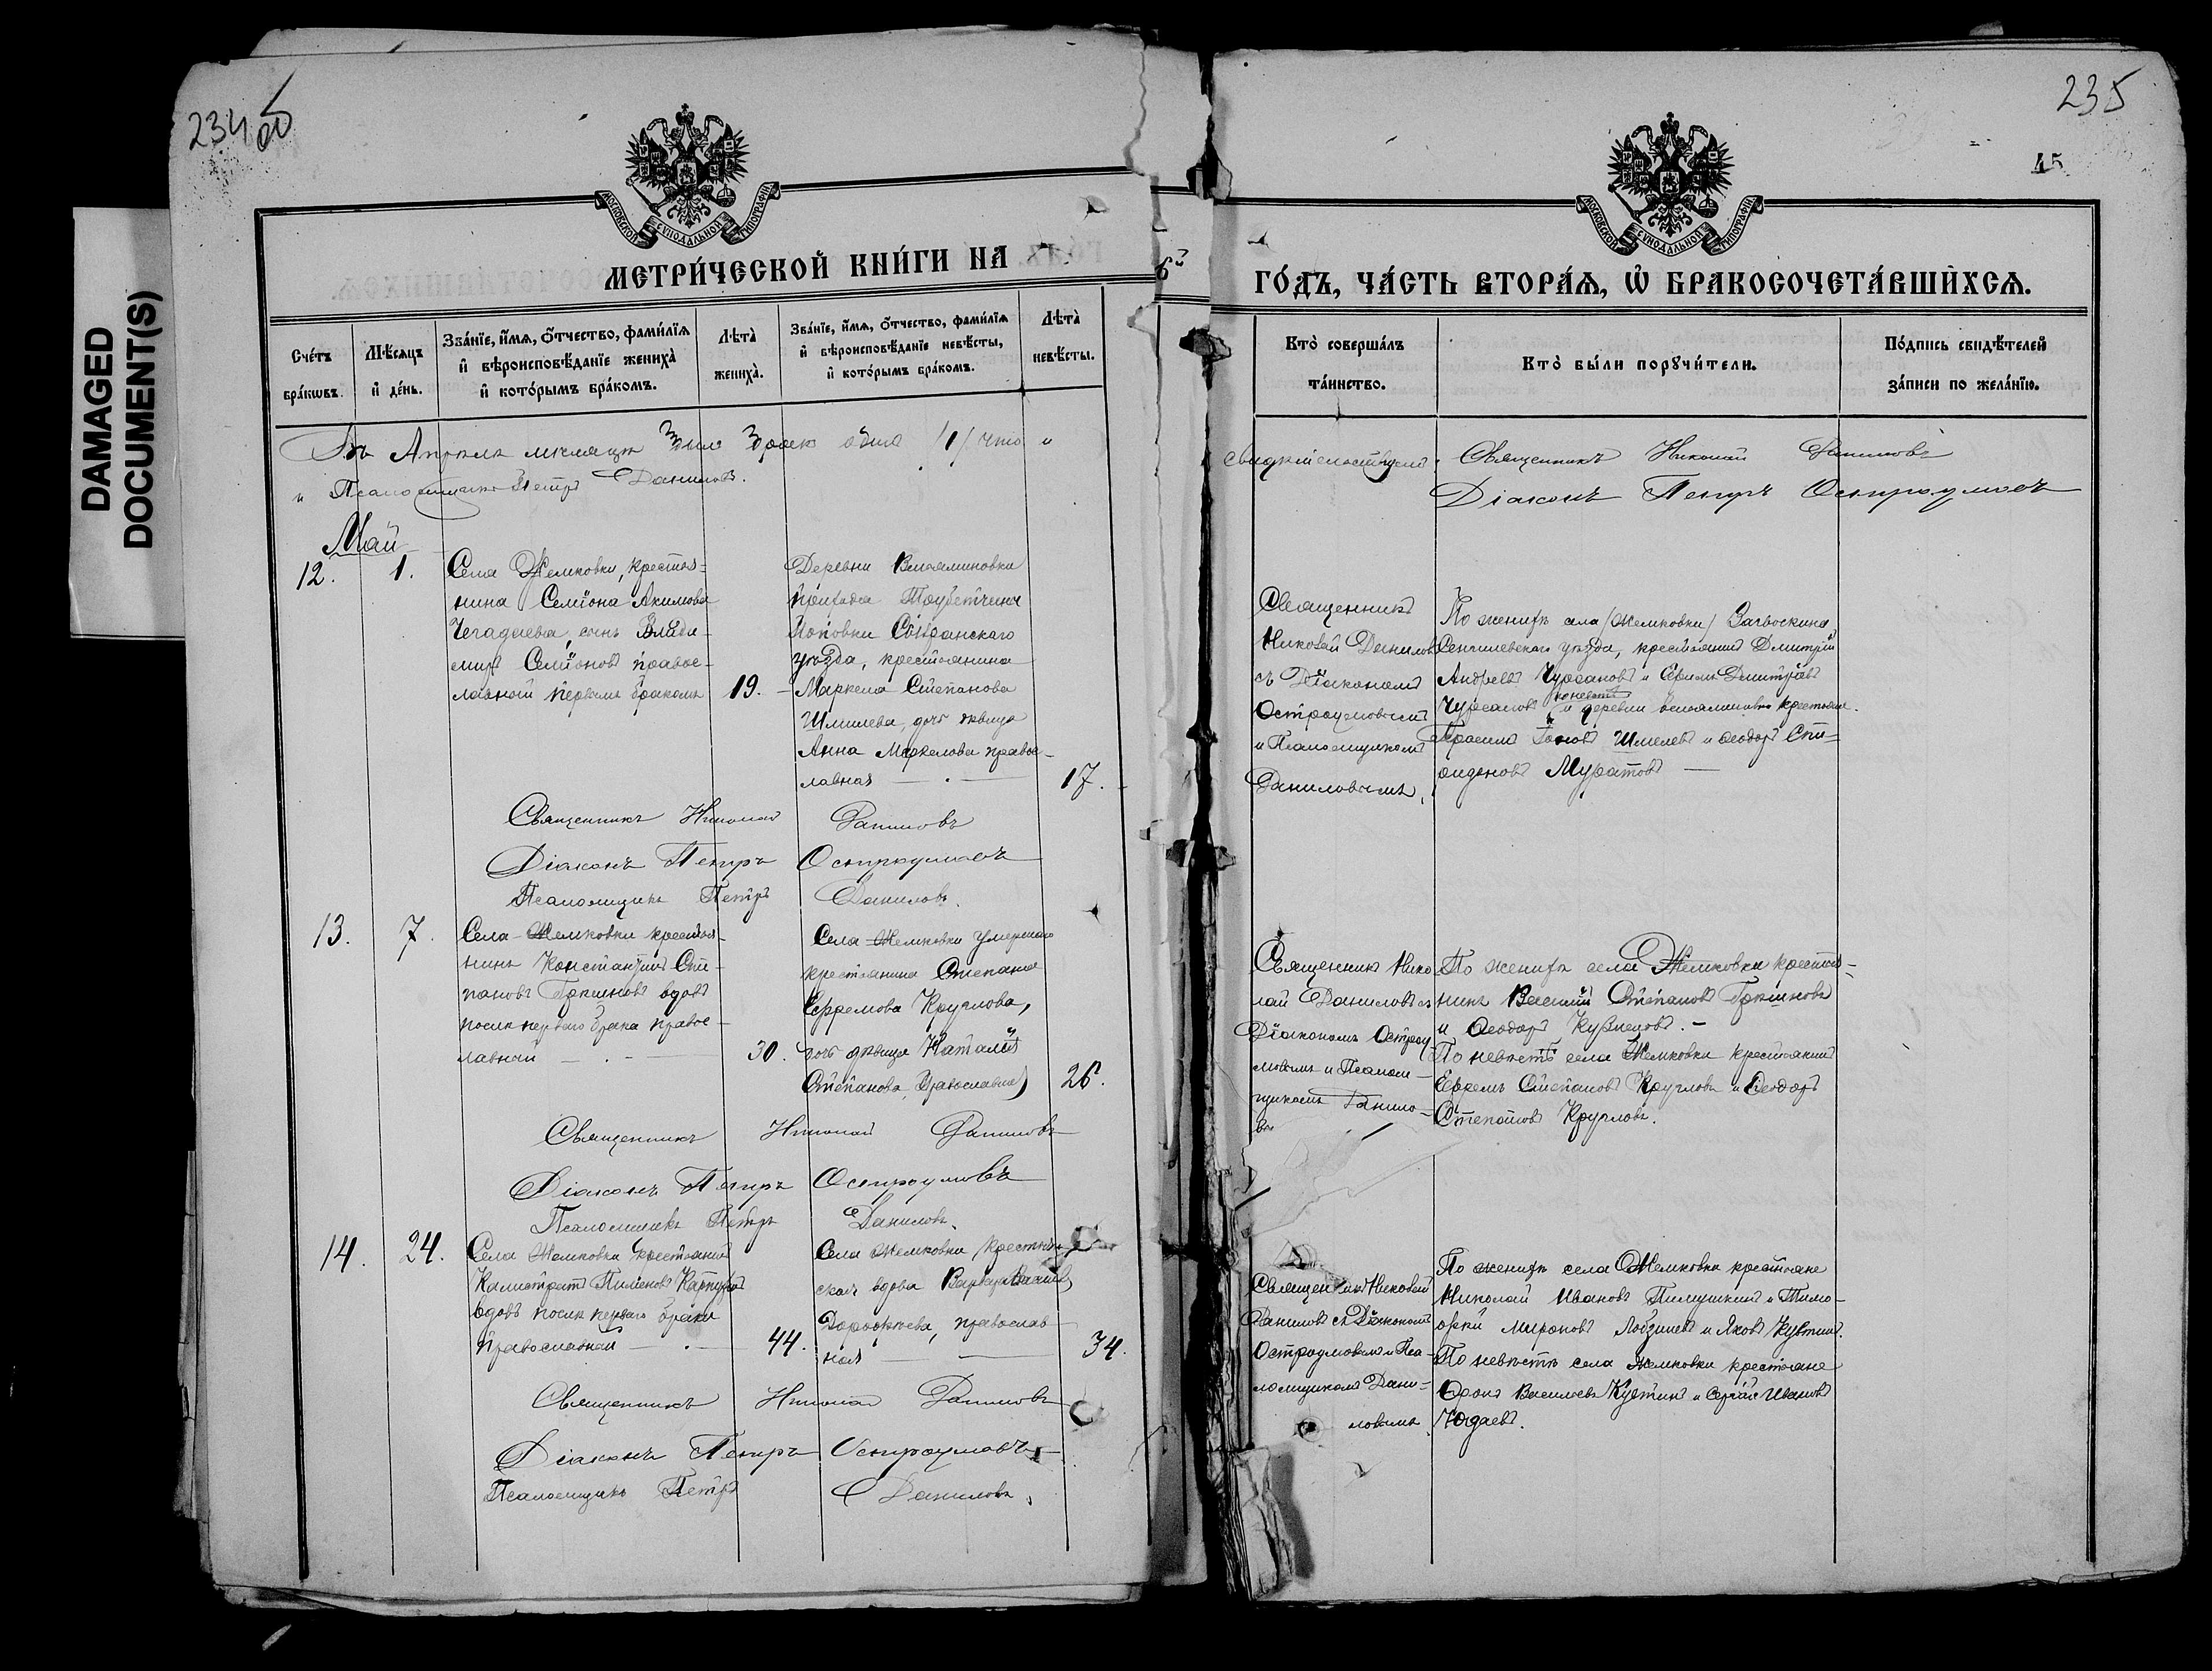 DAMAGED
DOCUMENT(S)
234 об
235
45
МОСКОВСКОЙ СѴНОДАЛЬНОЙ ТИПОГРАФІИ
МОСКОВСКОЙ СѴНОДАЛЬНОЙ ТИПОГРАФІИ
МЕТРИ́ЧЕСКОЙ КНИ́ГИ НА
ГО́ДЪ, ЧА́СТЬ ВТОРА́Ѧ, Ѡ҆ БРАКОСОЧЕТА́ВШИХСѦ.
Сче́тъ бра́кѡвъ.
Мѣ́сѧцъ и҆ де́нь.
Зва́нїе, и҆́мѧ, ѻ҆́тчество, фами́лїѧ и҆ вѣроисповѣ́данїе жениха̀ и҆ кото́рымъ бра́комъ.
Лѣта̀ жениха̀.
Зва́нїе, и҆́мѧ, ѻ҆́тчество, фами́лїѧ и҆ вѣроисповѣ́данїе невѣ́сты, и҆ кото́рымъ бра́комъ.
Лѣта̀ невѣ́сты.
Кто̀ соверша́лъ та́инство.
Кто̀ бы́ли порꙋчи́тели.
По́дпись свидѣ́телей за́писи по жела́нїю.
Въ Апрѣлѣ мѣсяцѣ /1/ что и
свидѣтельствуемъ: Священникъ Николай Даниловъ
и Псаломщикъ Петръ Даниловъ.
Діаконъ Петръ Остроумовъ
Май
12. 1.
Села Жемковки, крестья-
нина Семіона Акимова
Чегадаева, сынъ Влади-
миръ Семіоновъ правос-
лавной первымъ бракомъ
19.
Деревни Вельяминовки
прихода
Поповки Сызранскаго
уѣзда, крестьянина
Маркела Степанова
Шмелева, дочь дѣвица
Анна Маркелова правос-
лавная
17.
Священникъ
Николай Даниловъ
съ Діакономъ
Остроумовымъ
и Псаломщикомъ
Даниловымъ,
По женихѣ села (Жемковки) Загвоскина
Сенгилевскаго уѣзда, крестьянинъ Дмитрій
Андреевъ Чурсановъ и Ефимъ Дмитріевъ
Чурсановъ и деревни Вельяминовки крестьяне.
Шмелевъ и Ѳеодоръ Спи-
ридоновъ Муратовъ
Священникъ Николай Даниловъ
Діаконъ Петръ Остроумовъ
Псаломщикъ Петръ Даниловъ.
13. 7.
Села Жемковки крестья-
нинъ Константинъ Сте-
пановъ Гришновъ вдовъ
послѣ перваго брака правос-
лавный
30.
Села Жемковки умершаго
крестьянина Степана
Ефремова Круглова,
дочь дѣвица Наталія
Степанова, Православная
26.
Священникъ Нико-
лай Даниловъ съ
Діакономъ Остроу-
мовымъ и Псалом-
щикомъ Данило-
вы
По женихѣ села Жемковки крестья-
нинъ Василій Степановъ Гришновъ
и Ѳеодоръ Кузнецовъ.
По невѣстѣ села Жемковки крестьянинъ
Ефремъ Степановъ Кругловъ и Ѳеодоръ
Степановъ Кругловъ.
Священникъ Николай Даниловъ
Діаконъ Петръ Остроумовъ
Псаломщикъ Петръ Даниловъ.
14. 24.
Села Жемковки крестьянинъ
Калистратъ Пименовъ
вдовъ послѣ перваго брака
православный
44.
Села Жемковки крестьян-
ская вдова Варвара
Дороѳѣева, православ-
ная
34.
Священникъ Николай
Даниловъ съ Діакономъ
Остроумовымъ и Пса-
ломщикомъ Дани-
ловымъ
По женихѣ села Жемковки крестьяне
Николай Ивановъ Пимушкинъ и Тимо-
ѳей Мироновъ и Яковъ
По невѣстѣ села Жемковки крестьяне
Василіевъ и Сергѣй Ивановъ
Чадаевъ.
Священникъ Николай Даниловъ
Діаконъ Петръ Остроумовъ
Псаломщикъ Петръ Даниловъ.